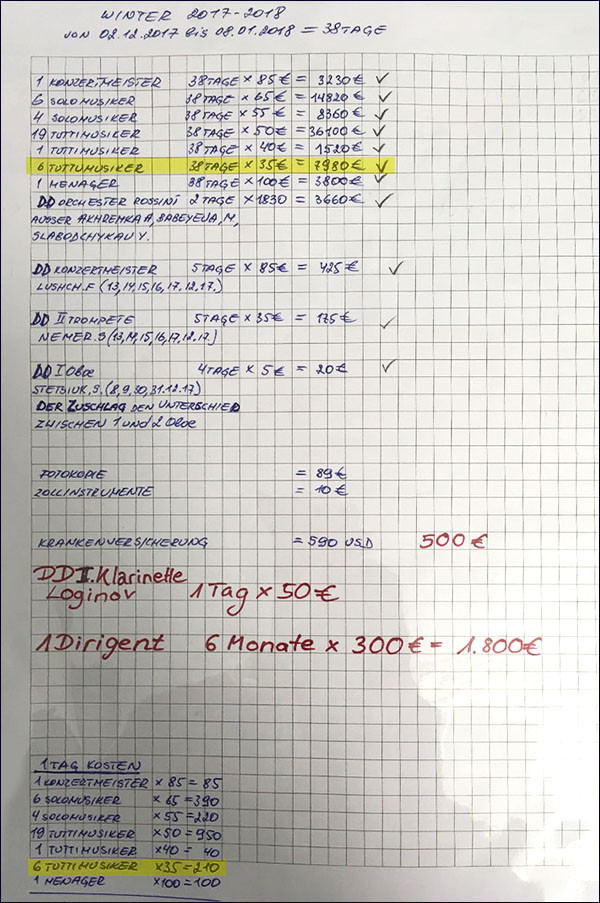 WINTER 2017-2018
VON 02.12.2017 BIS 08.01.2018 = 38TAGE
1 KONZERTMEISTER 38TAGE × 85€ = 3230€ ✓
6 SOLOMUSIKER 38TAGE × 65€ = 14820€ ✓
4 SOLOMUSIKER 38TAGE × 55€ = 8360€ ✓
19 TUTTIMUSIKER 38TAGE × 50€ = 36100€ ✓
1 TUTTIMUSIKER 38TAGE × 40€ = 1520€ ✓
6 TUTTUMUSIKER 38TAGE × 35€ = 7980€ ✓
1 MENAGER 38TAGE × 100€ = 3800€ ✓
DD ORCHESTER ROSSINI 2TAGE × 1830 = 3660€ ✓
AUSSER AKHREMKA A, BABEYEVA, M,
SLABODCHYKAU Y.
DD KONZERTMEISTER 5TAGE × 85€ = 425€ ✓
LUSHCH.F (13,14,15,16,17.12.17.)
DD II TROMPETE 5TAGE × 35€ = 175€ ✓
NEMER.S (13,14,15,16,17.12.17)
DD I Oboe 4TAGE × 5€ = 20€ ✓
STETSIUK,S.(8,9,30,31.12.17)
DER ZUSCHLAG DEN UNTERSCHIED
ZWISCHEN 1 UND 2 Oboe
FOTOKOPIE = 89€
ZOLLINSTRUMENTE = 10€
KRANKENVERSICHERUNG = 590 USD 500€
DD II.Klarinette
Loginov 1Tag × 50€
1 Dirigent 6 Monate × 300€ = 1.800€
1 TAG KOSTEN
1 KONZERTMEISTER × 85 = 85
6 SOLOMUSIKER × 65 = 390
4 SOLOMUSIKER × 55 = 220
19 TUTTIMUSIKER × 50 = 950
1 TUTTIMUSIKER × 40 = 40
6 TUTTIMUSIKER × 35 = 210
1 MENAGER × 100 = 100